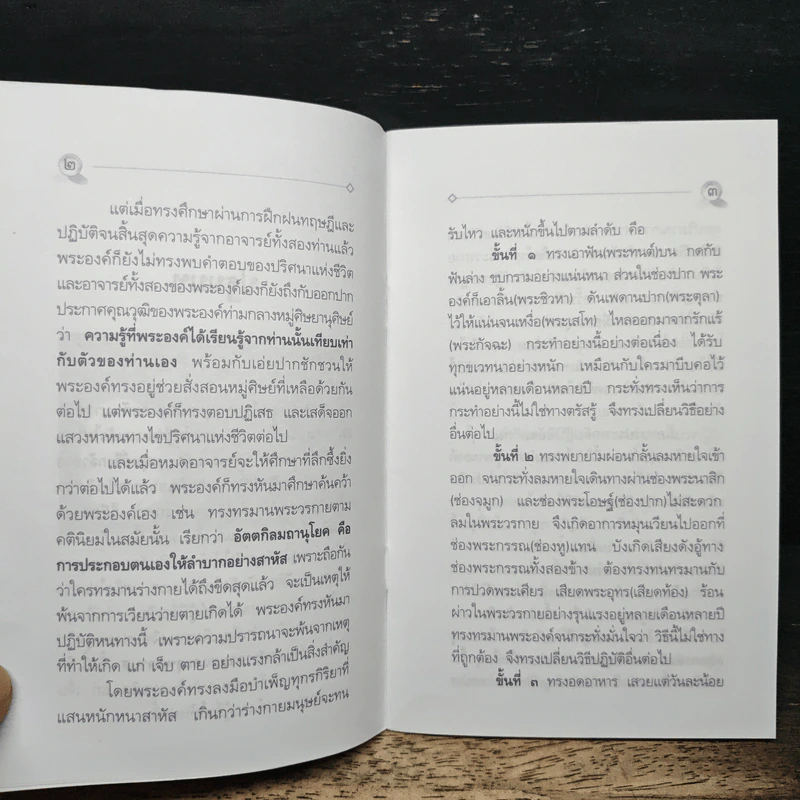 ๒
แต่เมื่อทรงศึกษาผ่านการฝึกฝนทฤษฎีและ
ปฏิบัติจนสิ้นสุดความรู้จากอาจารย์ทั้งสองท่านแล้ว
พระองค์ก็ยังไม่ทรงพบคำตอบของปริศนาแห่งชีวิต
และอาจารย์ทั้งสองของพระองค์เองก็ยังถึงกับออกปาก
ประกาศคุณวุฒิของพระองค์ท่ามกลางหมู่ศิษยานุศิษย์
ว่า ความรู้ที่พระองค์ได้เรียนรู้จากท่านนั้นเทียบเท่า
กับตัวของท่านเอง พร้อมกับเอ่ยปากชักชวนให้
พระองค์ทรงอยู่ช่วยสั่งสอนหมู่ศิษย์ที่เหลือด้วยกัน
ต่อไป แต่พระองค์ก็ทรงตอบปฏิเสธ และเสด็จออก
แสวงหาหนทางไขปริศนาแห่งชีวิตต่อไป
และเมื่อหมดอาจารย์จะให้ศึกษาที่ลึกซึ้งยิ่ง
กว่าต่อไปได้แล้ว พระองค์ก็ทรงหันมาศึกษาค้นคว้า
ด้วยพระองค์เอง เช่น ทรงทรมานพระวรกายตาม
คตินิยมในสมัยนั้น เรียกว่า อัตตกิลมถานุโยค คือ
การประกอบตนเองให้ลำบากอย่างสาหัส เพราะถือกัน
ว่าใครทรมานร่างกายได้ถึงขีดสุดแล้ว จะเป็นเหตุให้
พ้นจากการเวียนว่ายตายเกิดได้ พระองค์ทรงหันมา
ปฏิบัติหนทางนี้ เพราะความปรารถนาจะพ้นจากเหตุ
ที่ทำให้เกิด แก่ เจ็บ ตาย อย่างแรงกล้าเป็นสิ่งสำคัญ
โดยพระองค์ทรงลงมือบำเพ็ญทุกรกิริยาที่
แสนหนักหนาสาหัส เกินกว่าร่างกายมนุษย์จะทน
๓
รับไหว และหนักขึ้นไปตามลำดับ คือ
ขั้นที่ ๑ ทรงเอาฟัน(พระทนต์)บน กดกับ
ฟันล่าง ขบกรามอย่างแน่นหนา ส่วนในช่องปาก พระ
องค์ก็เอาลิ้น(พระชิวหา) ดันเพดานปาก(พระตุลา)
ไว้ให้แน่นจนเหงื่อ(พระเสโท) ไหลออกมาจากรักแร้
(พระกัจฉะ) กระทำอย่างนี้อย่างต่อเนื่อง ได้รับ
ทุกขเวทนาอย่างหนัก เหมือนกับใครมาบีบคอไว้
แน่นอยู่หลายเดือนหลายปี กระทั่งทรงเห็นว่าการ
กระทำอย่างนี้ไม่ใช่ทางตรัสรู้ จึงทรงเปลี่ยนวิธีอย่าง
อื่นต่อไป
ขั้นที่ ๒ ทรงพยายามผ่อนกลั้นลมหายใจเข้า
ออก จนกระทั่งลมหายใจเดินทางผ่านช่องพระนาสิก
(ช่องจมูก) และช่องพระโอษฐ์(ช่องปาก)ไม่สะดวก
ลมในพระวรกาย จึงเกิดอาการหมุนเวียนไปออกที่
ช่องพระกรรณ(ช่องหู)แทน บังเกิดเสียงดังอู้ทาง
ช่องพระกรรณทั้งสองข้าง ต้องทรงทนทรมานกับ
การปวดพระเศียร เสียดพระอุทร(เสียดท้อง) ร้อน
ผ่าวในพระวรกายอย่างรุนแรงอยู่หลายเดือนหลายปี
ทรงทรมานพระองค์จนกระทั่งมั่นใจว่า วิธีนี้ไม่ใช่ทาง
ที่ถูกต้อง จึงทรงเปลี่ยนวิธีปฏิบัติอื่นต่อไป
ขั้นที่ ๓ ทรงอดอาหาร เสวยแต่วันละน้อย